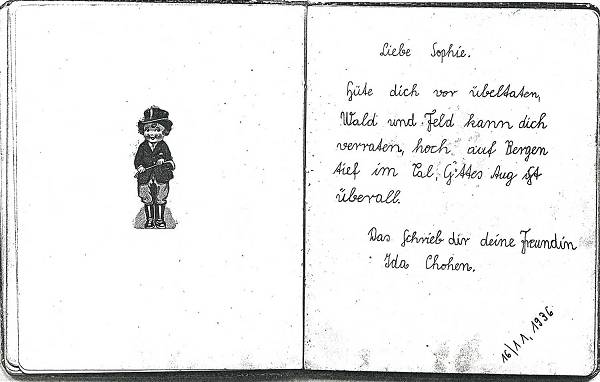 Liebe Sophie.
Hüte dich vor übeltaten,
Wald und Feld kann dich
verraten, hoch auf Bergen
tief im Tal, Gottes Aug ist
überall.
Das Schrieb dir deine Freundin
Ida Chohen.
16/11, 1936